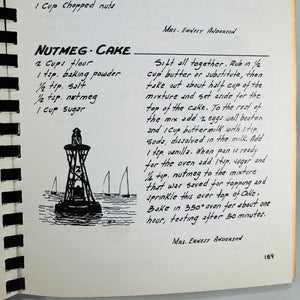 1 Cup Chopped nuts
Mrs. Ernest Anderson
Nutmeg · Cake
2 Cups flour
1 tsp. baking powder
½ tsp. salt
½ tsp. nutmeg
1 cup sugar
Sift all together. Rub in ½
cup butter or substitute, then
take out about half cup of the
mixture and set aside for the
top of the cake. To the rest of
the mix add 2 eggs well beaten
and 1 cup buttermilk with 1 tsp.
soda, dissolved in the milk. Add
1 tsp. vanilla. When pan is ready
for the oven add 1 tsp. sugar and
½ tsp. nutmeg to the mixture
that was saved for topping and
sprinkle this over top of Cake.
Bake in 350° oven for about one
hour, testing after 50 minutes.
Mrs. Ernest Anderson
189